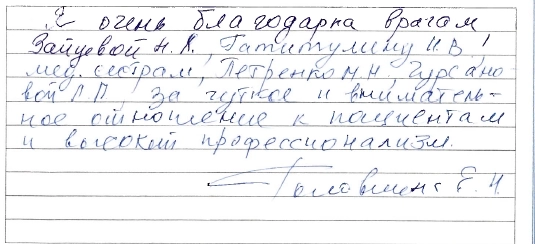 Я очень благодарна врачам
Зайцевой Н.А., И.В.!
мед. сестрам, Петренко М.Н., Гурсано
вой Л.П за чуткое и вниматель-
ное отношение к пациентам
и высокий профессионализм.
Е.Н.